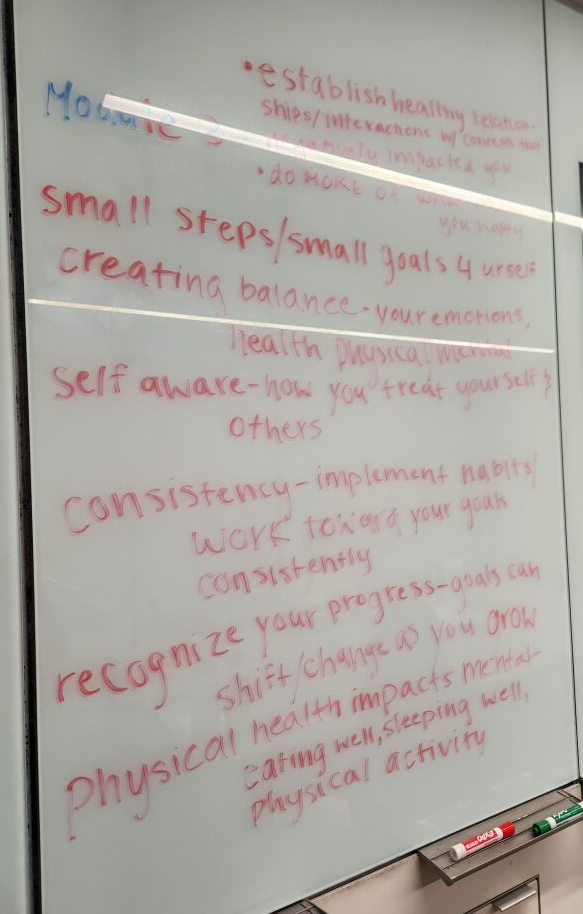 • establish healthy relation-
ships/interactions w/ concepts that
Module 2 - negatively impacted you
• do MORE OF what
you happy
small steps/small goals 4 urself
creating balance-your emotions,
health physical mental
Self aware-how you treat yourself &
others
Consistency-implement habits/
work toward your goals
consistently
recognize your progress-goals can
shift/change as you grow
Physical health impacts mental-
eating well, sleeping well,
physical activity
EXPO
EXPO